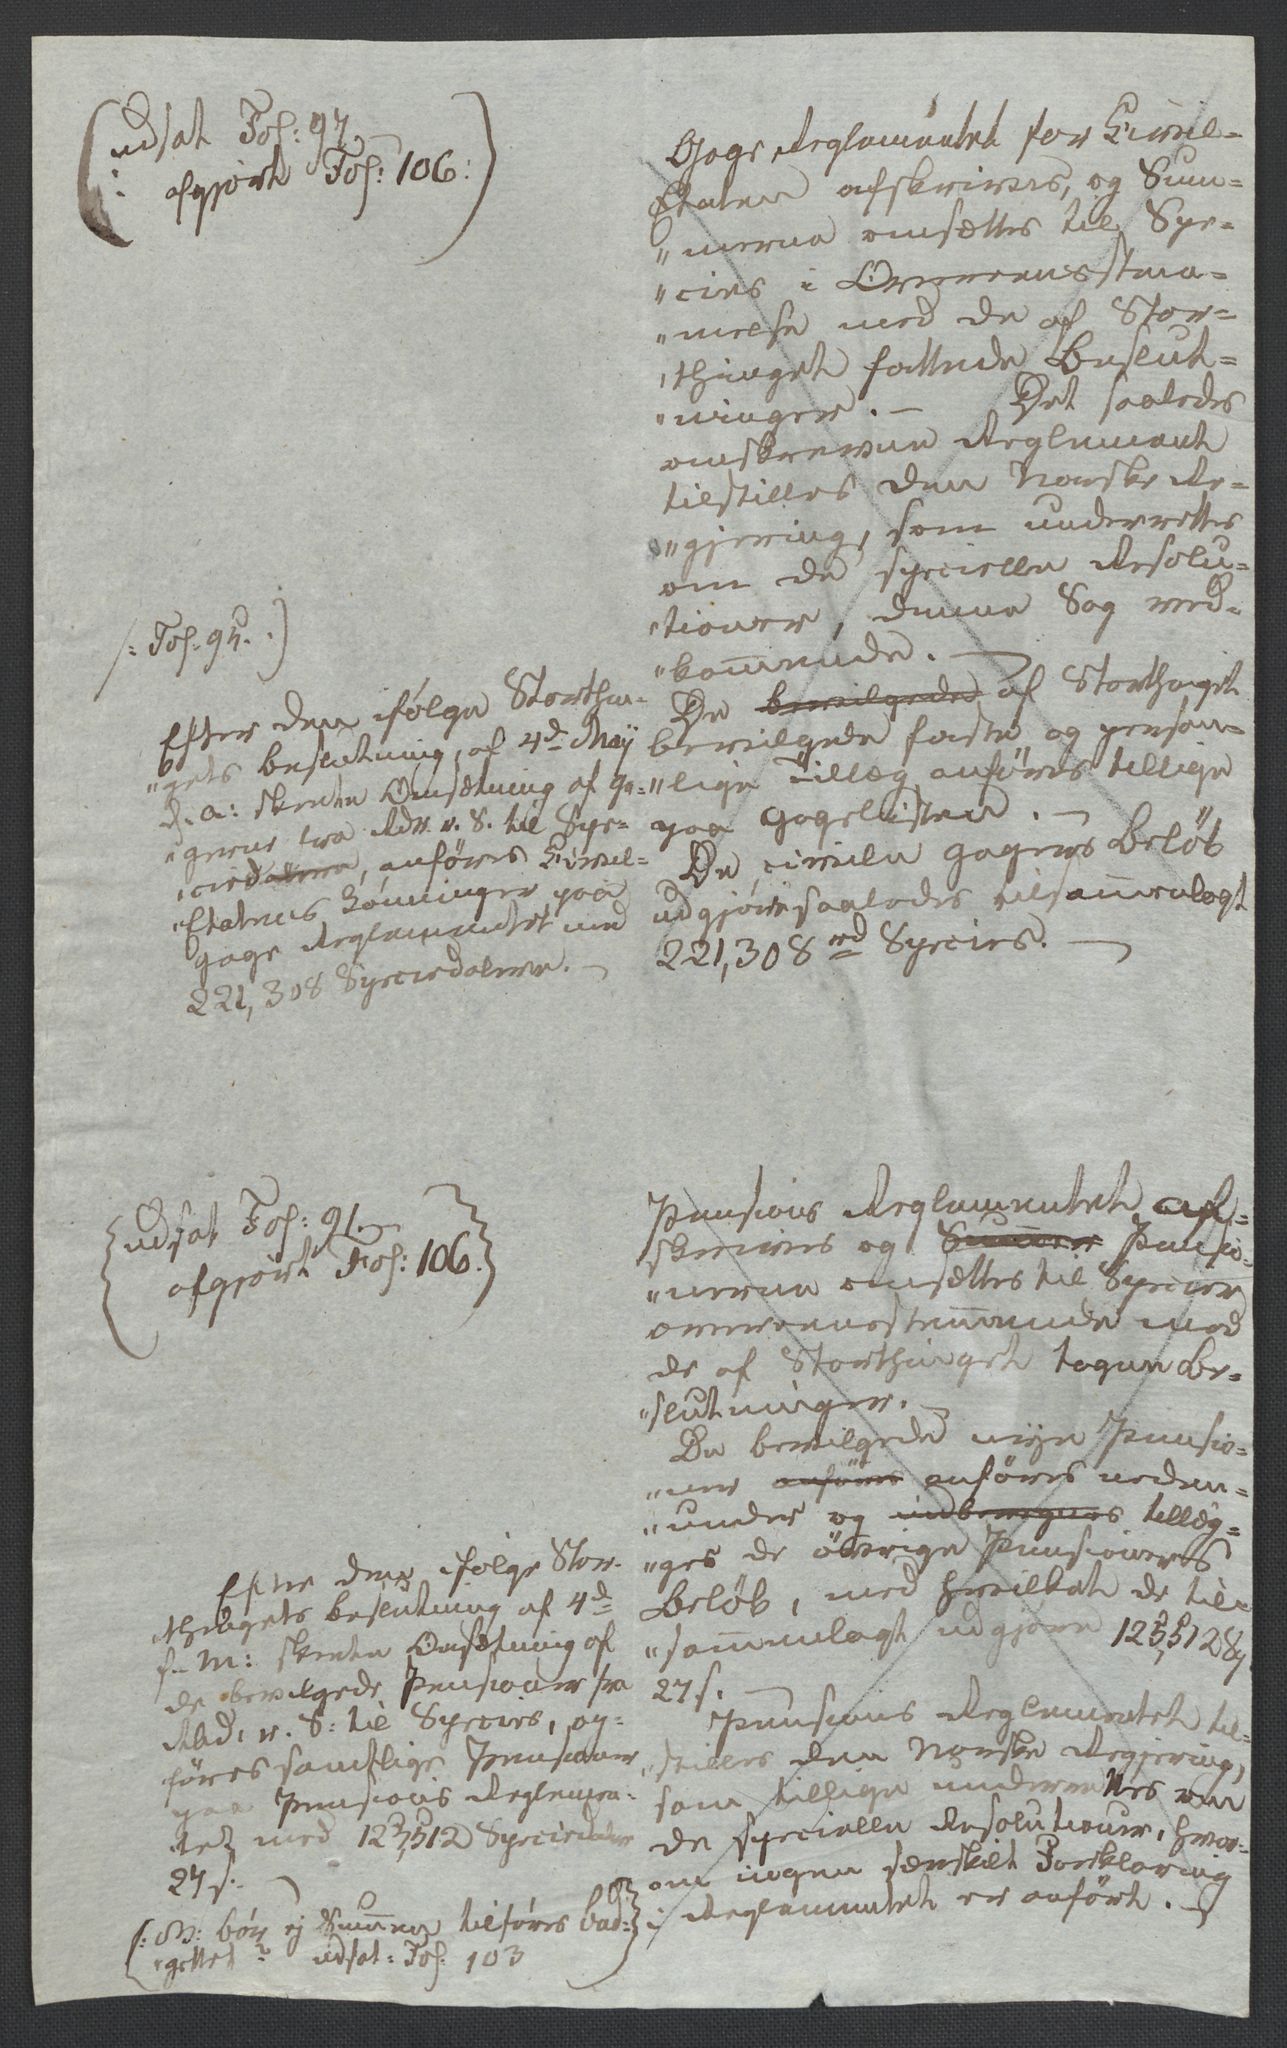 udsat Fol: 97
afgjort Fol: 106:
Gage Reglementet for Civil-
Etaten afskrives, og Sum-
"merne omsættes til Spe-
"cies i Overeensstem-
"melse med de af Stor-
"thinget fattede Beslut-
"ninger. — Det saaledes
omskrevne Reglement
tilstilles den Norske Re-
"gjering, som underrettes
om de specielle Resolu-
"tioner, denne Sag ved-
"kommende. —
De bevilgede af Storthinget
bevilgede faste og person-
"lige Tillæg anføres tillige
paa Gagelisten. —
De civile Gagers Beløb
udgjøre saaledes tilsammenlagt
221,308 rd Species. —
/: Fol: 97. :/
Efter den ifølge Storthin-
"gets beslutning, af 4d May
d. a: skeete Omsætning af Ga-
"gerne fra Rdr. r. S. til Spe-
"ciedalere, anføres Civil-
"Etatens Lønninger paa
Gage Reglementet med
221,308 Speciedalere. —
udsat Fol: 91.
afgjort Fol: 106.
Pensions Reglementet af-
skrives og Summer Pensio-
"nerne omsættes til Species
overeensstemmende med
de af Storthinget tagne Be-
"slutninger. —
De bevilgede nye Pensio-
"ner anføres anføres neden-
"under og indberegnes tillæg-
"ges de øvrige Pensioners
Beløb, med hvilket de til-
"sammenlagt udgjøre 123,512 Sp.
27 s. —
Pensions Reglementet til-
"stilles den Norske Regjering,
som tillige underrettes om
de specielle Resolutioner, hvor-
om ingen særskilt Forklaring
i Reglementet er anført. —
Efter den ifølge Stor-
"thingets beslutning af 4d
f. M: skeete Omsætning af
de bevilgede Pensioner fra
Rbd. r. S: til Species, op-
føres samtlige Pensioner
paa Pensions Reglemen-
tet med 123,512 Speciedaler
27 s. —
/: NB: bør ej Summen tilføres Bud-
"gettet? udsat: Fol. 103